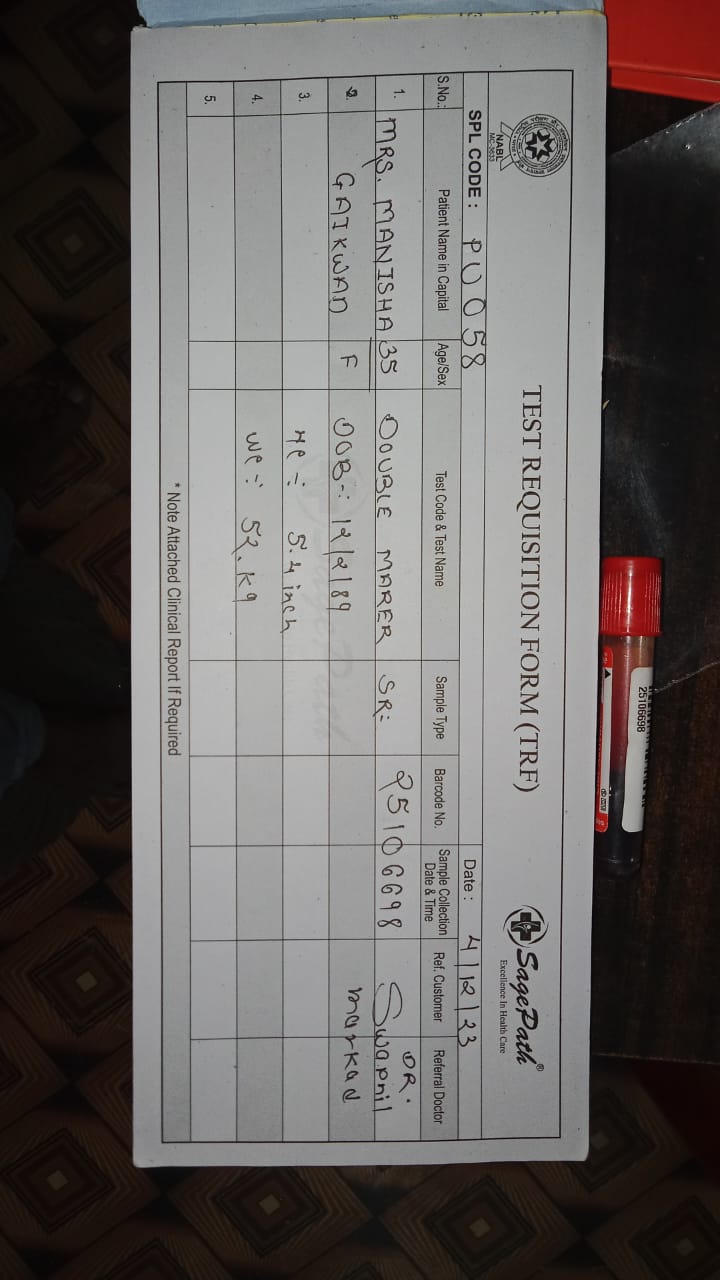 NABL
MC-3633
TEST REQUISITION FORM (TRF)
SagePath®
Excellence In Health Care
SPL CODE : PU058
Date : 4/12/23
S.No.: Patient Name in Capital Age/Sex Test Code & Test Name Sample Type Barcode No. Sample Collection Date & Time Ref. Customer Referral Doctor
1. MRS. MANISHA 35 DOUBLE MARER SR:- 25106698 DR. Swapnil
2. GAIKWAD F DOB-: 12/2/89 markad
3. He :- 5.4 inch
4. We :- 52.kg
5.
* Note Attached Clinical Report If Required
25106698